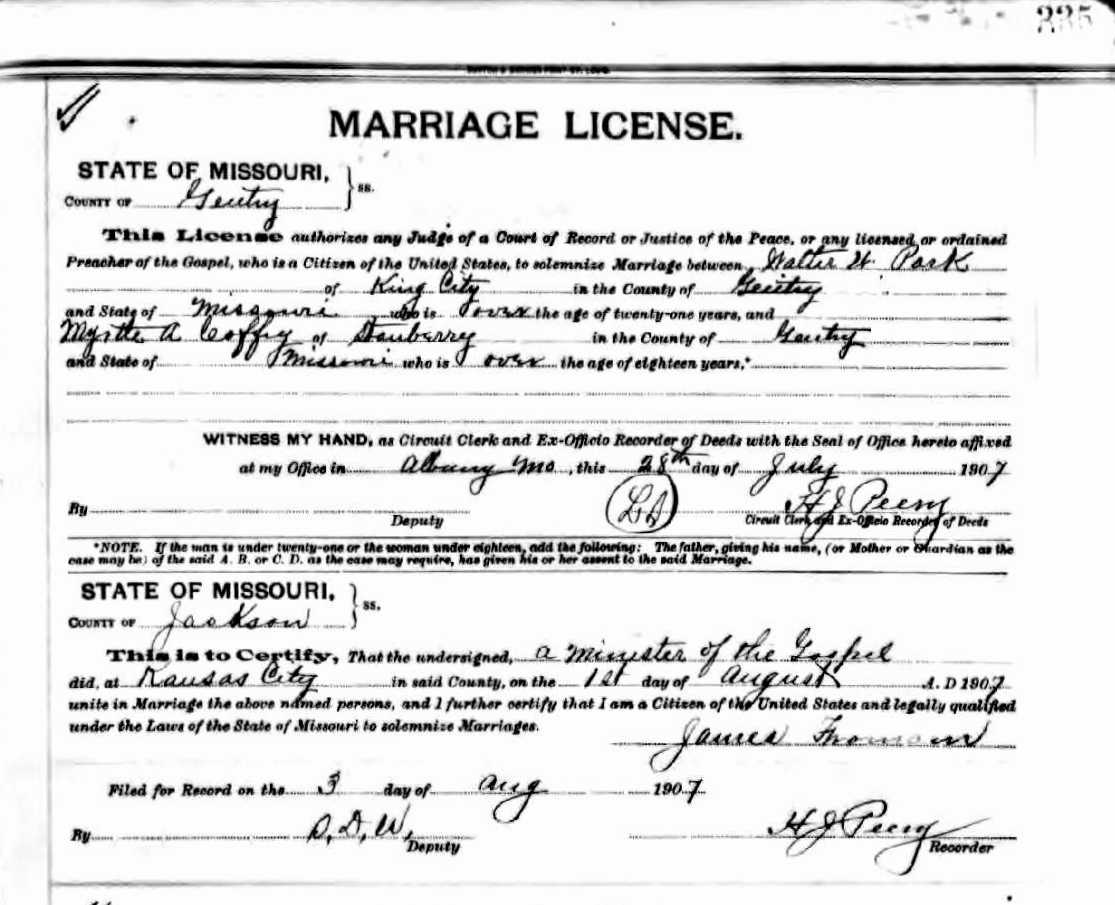 335
MARRIAGE LICENSE.
STATE OF MISSOURI,
COUNTY OF Gentry ss.
This License authorizes any Judge of a Court of Record or Justice of the Peace, or any licensed or ordained
Preacher of the Gospel, who is a Citizen of the United States, to solemnize Marriage between Walter W. Park
of King City in the County of Gentry
and State of Missouri who is over the age of twenty-one years, and
Myrtle A Coffey of Stanberry in the County of Gentry
and State of Missouri who is over the age of eighteen years,*
WITNESS MY HAND, as Circuit Clerk and Ex-Officio Recorder of Deeds with the Seal of Office hereto affixed
at my Office in Albany Mo, this 28th day of July 1907
By Deputy (LS) H J Peery
Circuit Clerk and Ex-Officio Recorder of Deeds
*NOTE. If the man is under twenty-one or the woman under eighteen, add the following: The father, giving his name, (or Mother or Guardian as the
case may be) of the said A. B. or C. D. as the case may require, has given his or her assent to the said Marriage.
STATE OF MISSOURI,
COUNTY OF Jackson ss.
This is to Certify, That the undersigned, a Minister of the Gospel
did, at Kansas City in said County, on the 1st day of August A. D 1907
unite in Marriage the above named persons, and I further certify that I am a Citizen of the United States and legally qualified
under the Laws of the State of Missouri to solemnize Marriages.
James
Filed for Record on the 3 day of Aug 1907
By D. W. Deputy H J Peery
Recorder